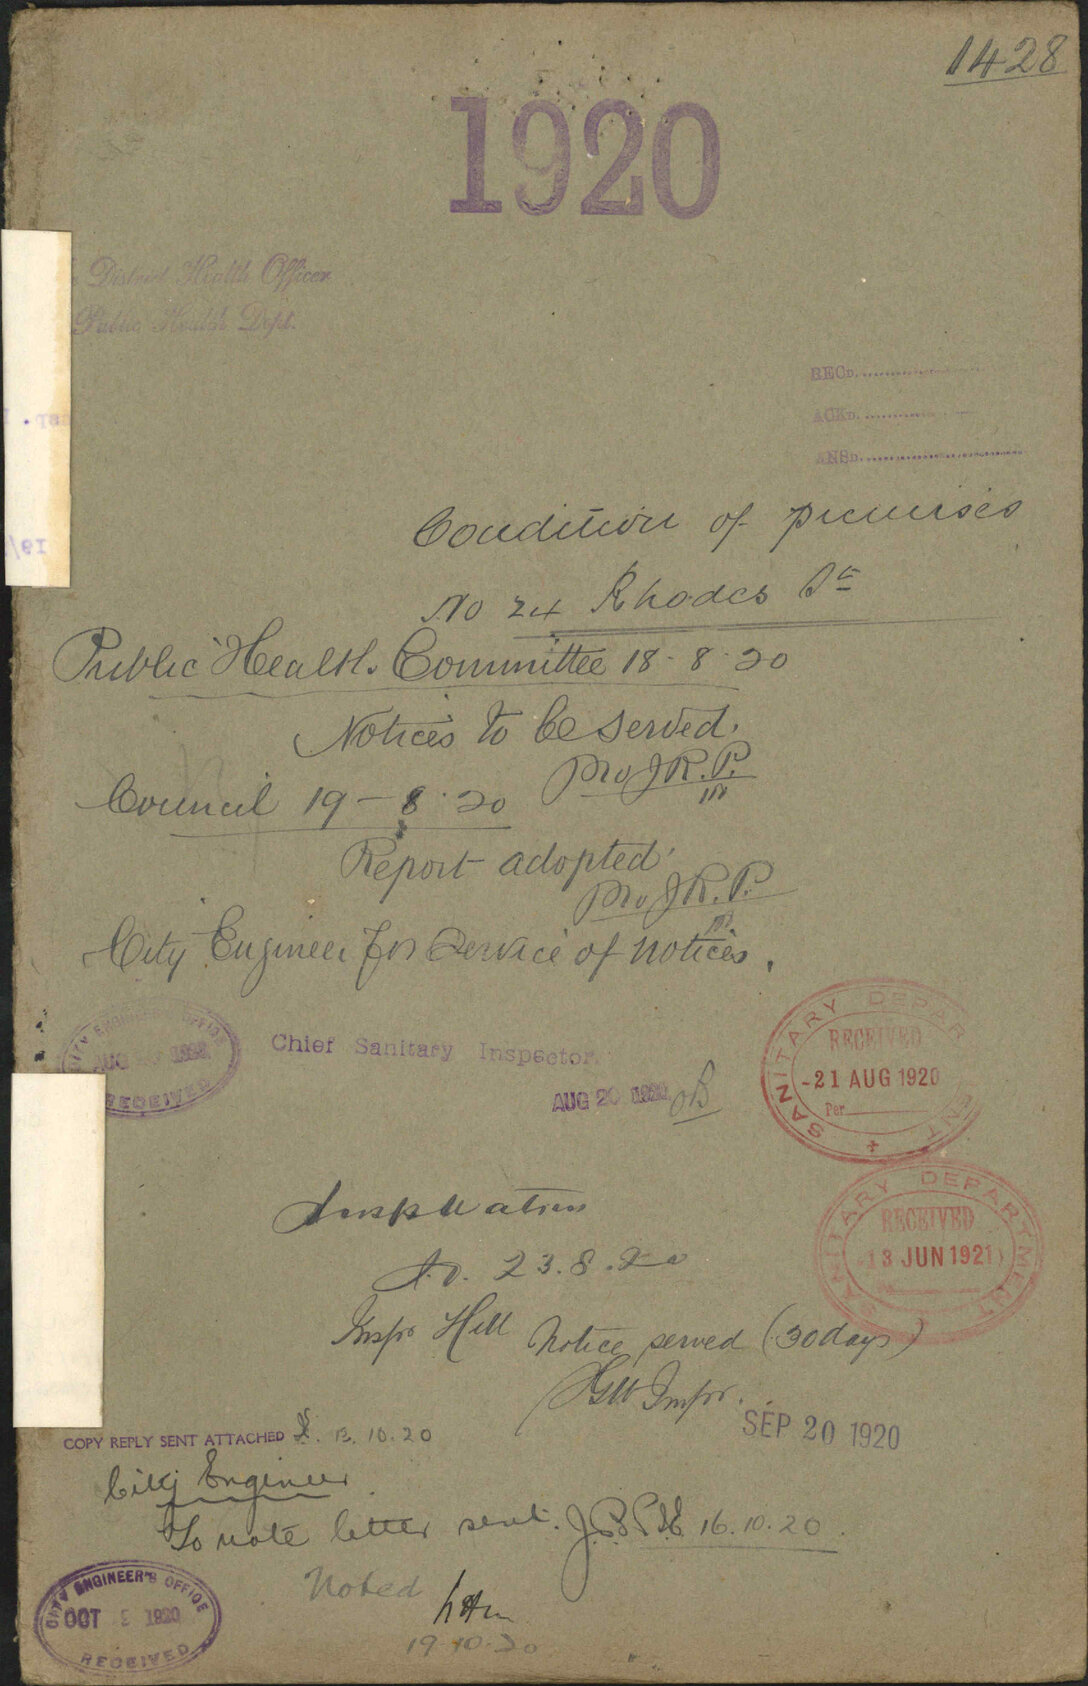 1428
1920
District Health Officer
Public Health Dept.
RECD.
ACKD.
ANSD.
Condition of premises
No 24 Rhodes St
Public Health Committee 18-8-20
Notices to be served.
pro J.R.P.
Council 19-8-20
Report adopted.
pro J.R.P.
City Engineer for Service of Notices.
CITY ENGINEER'S OFFICE
AUG 1920
RECEIVED
Chief Sanitary Inspector.
AUG 20 1920
SANITARY DEPARTMENT
RECEIVED
-21 AUG 1920
Per
SANITARY DEPARTMENT
RECEIVED
13 JUN 1921
23.8.20
Inspr Hill
Notice served (30 days)
Inspr.
SEP 20 1920
COPY REPLY SENT ATTACHED 13.10.20
City Engineer
To note letter sent. 16.10.20
CITY ENGINEER'S OFFICE
OCT 1920
RECEIVED
Noted
19.10.20